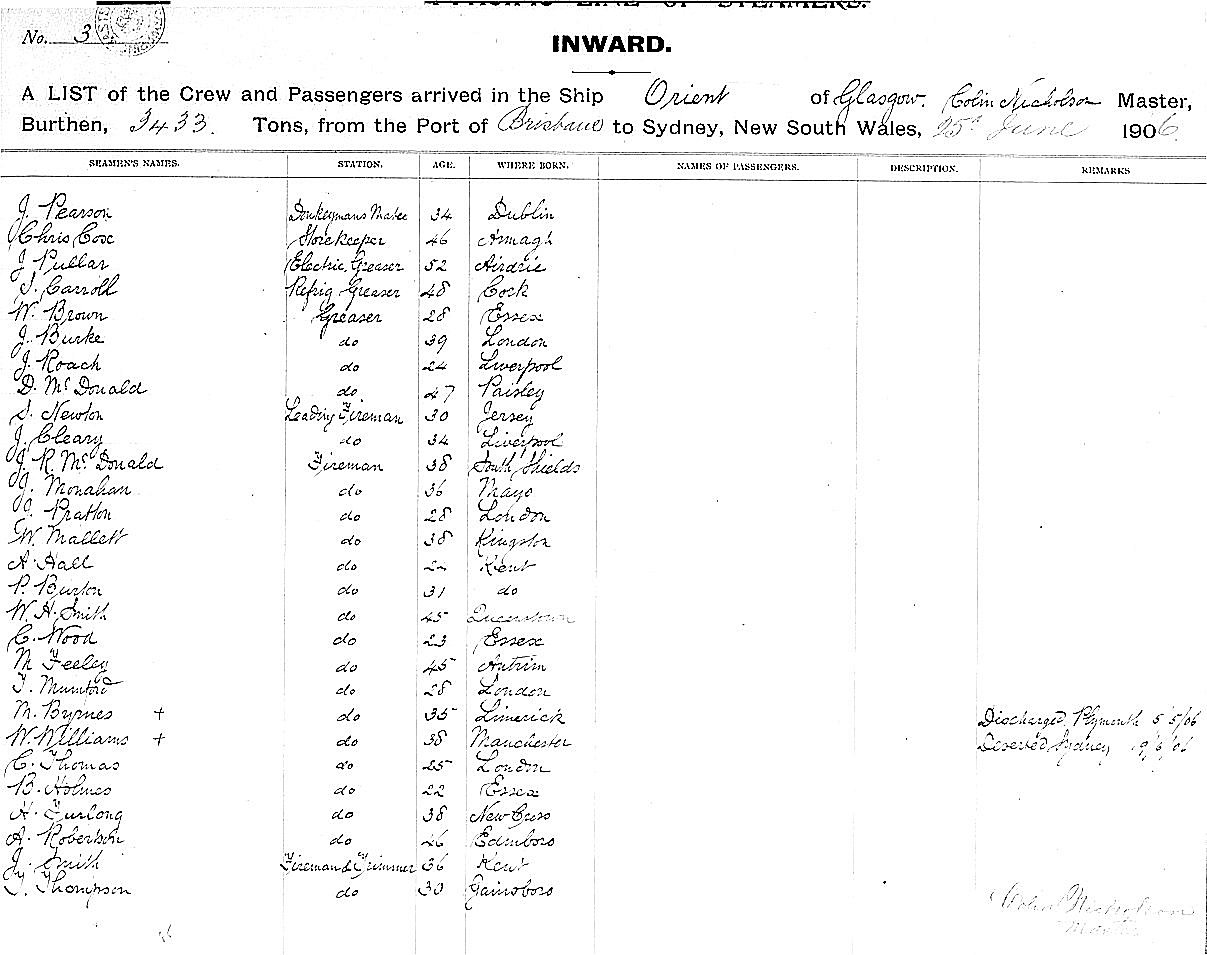 PACIFIC LINE OF STEAMERS.
No. 3
INWARD.
A LIST of the Crew and Passengers arrived in the Ship Orient of Glasgow. Colin Nicholson Master,
Burthen, 3433. Tons, from the Port of Brisbane to Sydney, New South Wales, 25th June 1906.
SEAMEN'S NAMES. STATION. AGE. WHERE BORN. NAMES OF PASSENGERS. DESCRIPTION. REMARKS
J. Pearson Donkeymans Mate 34 Dublin
Chris Cose Storekeeper 46 Armagh
J. Pullar Electric Greaser 52 Airdrie
S. Carroll Refrig Greaser 48 Cock
W. Brown Greaser 28 Essex
J. Burke do 39 London
J. Roach do 24 Liverpool
D. McDonald do 47 Paisley
S. Newton Leading Fireman 30 Jersey
J. Cleary do 34 Liverpool
J. R. McDonald Fireman 38 South Shields
J. Monahan do 36 Mayo
J. Pratton do 28 London
W. Mallett do 38 Kingston
A. Hall do Kent
P. Burton do 31 do
W. H. Smith do 45 Queenstown
C. Wood do 23 Essex
M Feeley do 45 Antrim
T. Mumford do 28 London
M. Byrnes + do 35 Limerick Discharged Plymouth 5/5/06
W. Williams + do 38 Manchester Deserted Sydney 19/6/06
C. Thomas do 25 London
B. Holmes do 22 Essex
H. Furlong do 38 New Cuso
A. Robertson do 26 Edinboro
J. Smith Fireman & Trimmer 36 Kent
T. Thompson do 30 Gainsboro
Colin Nicholson
Master